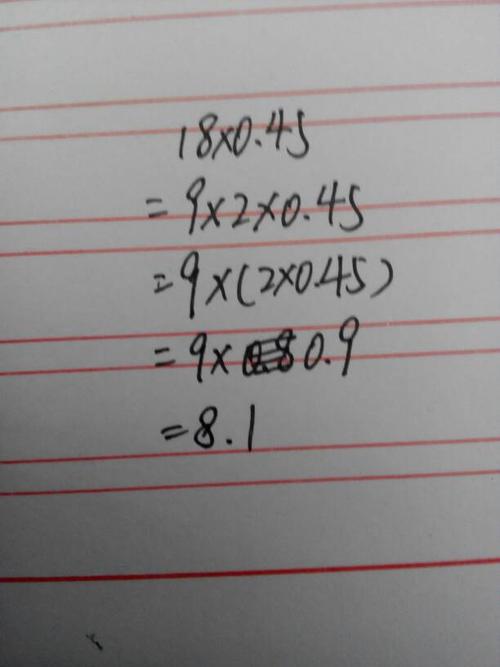 18×0.45
=9×2×0.45
=9×(2×0.45)
=9×0.9
=8.1